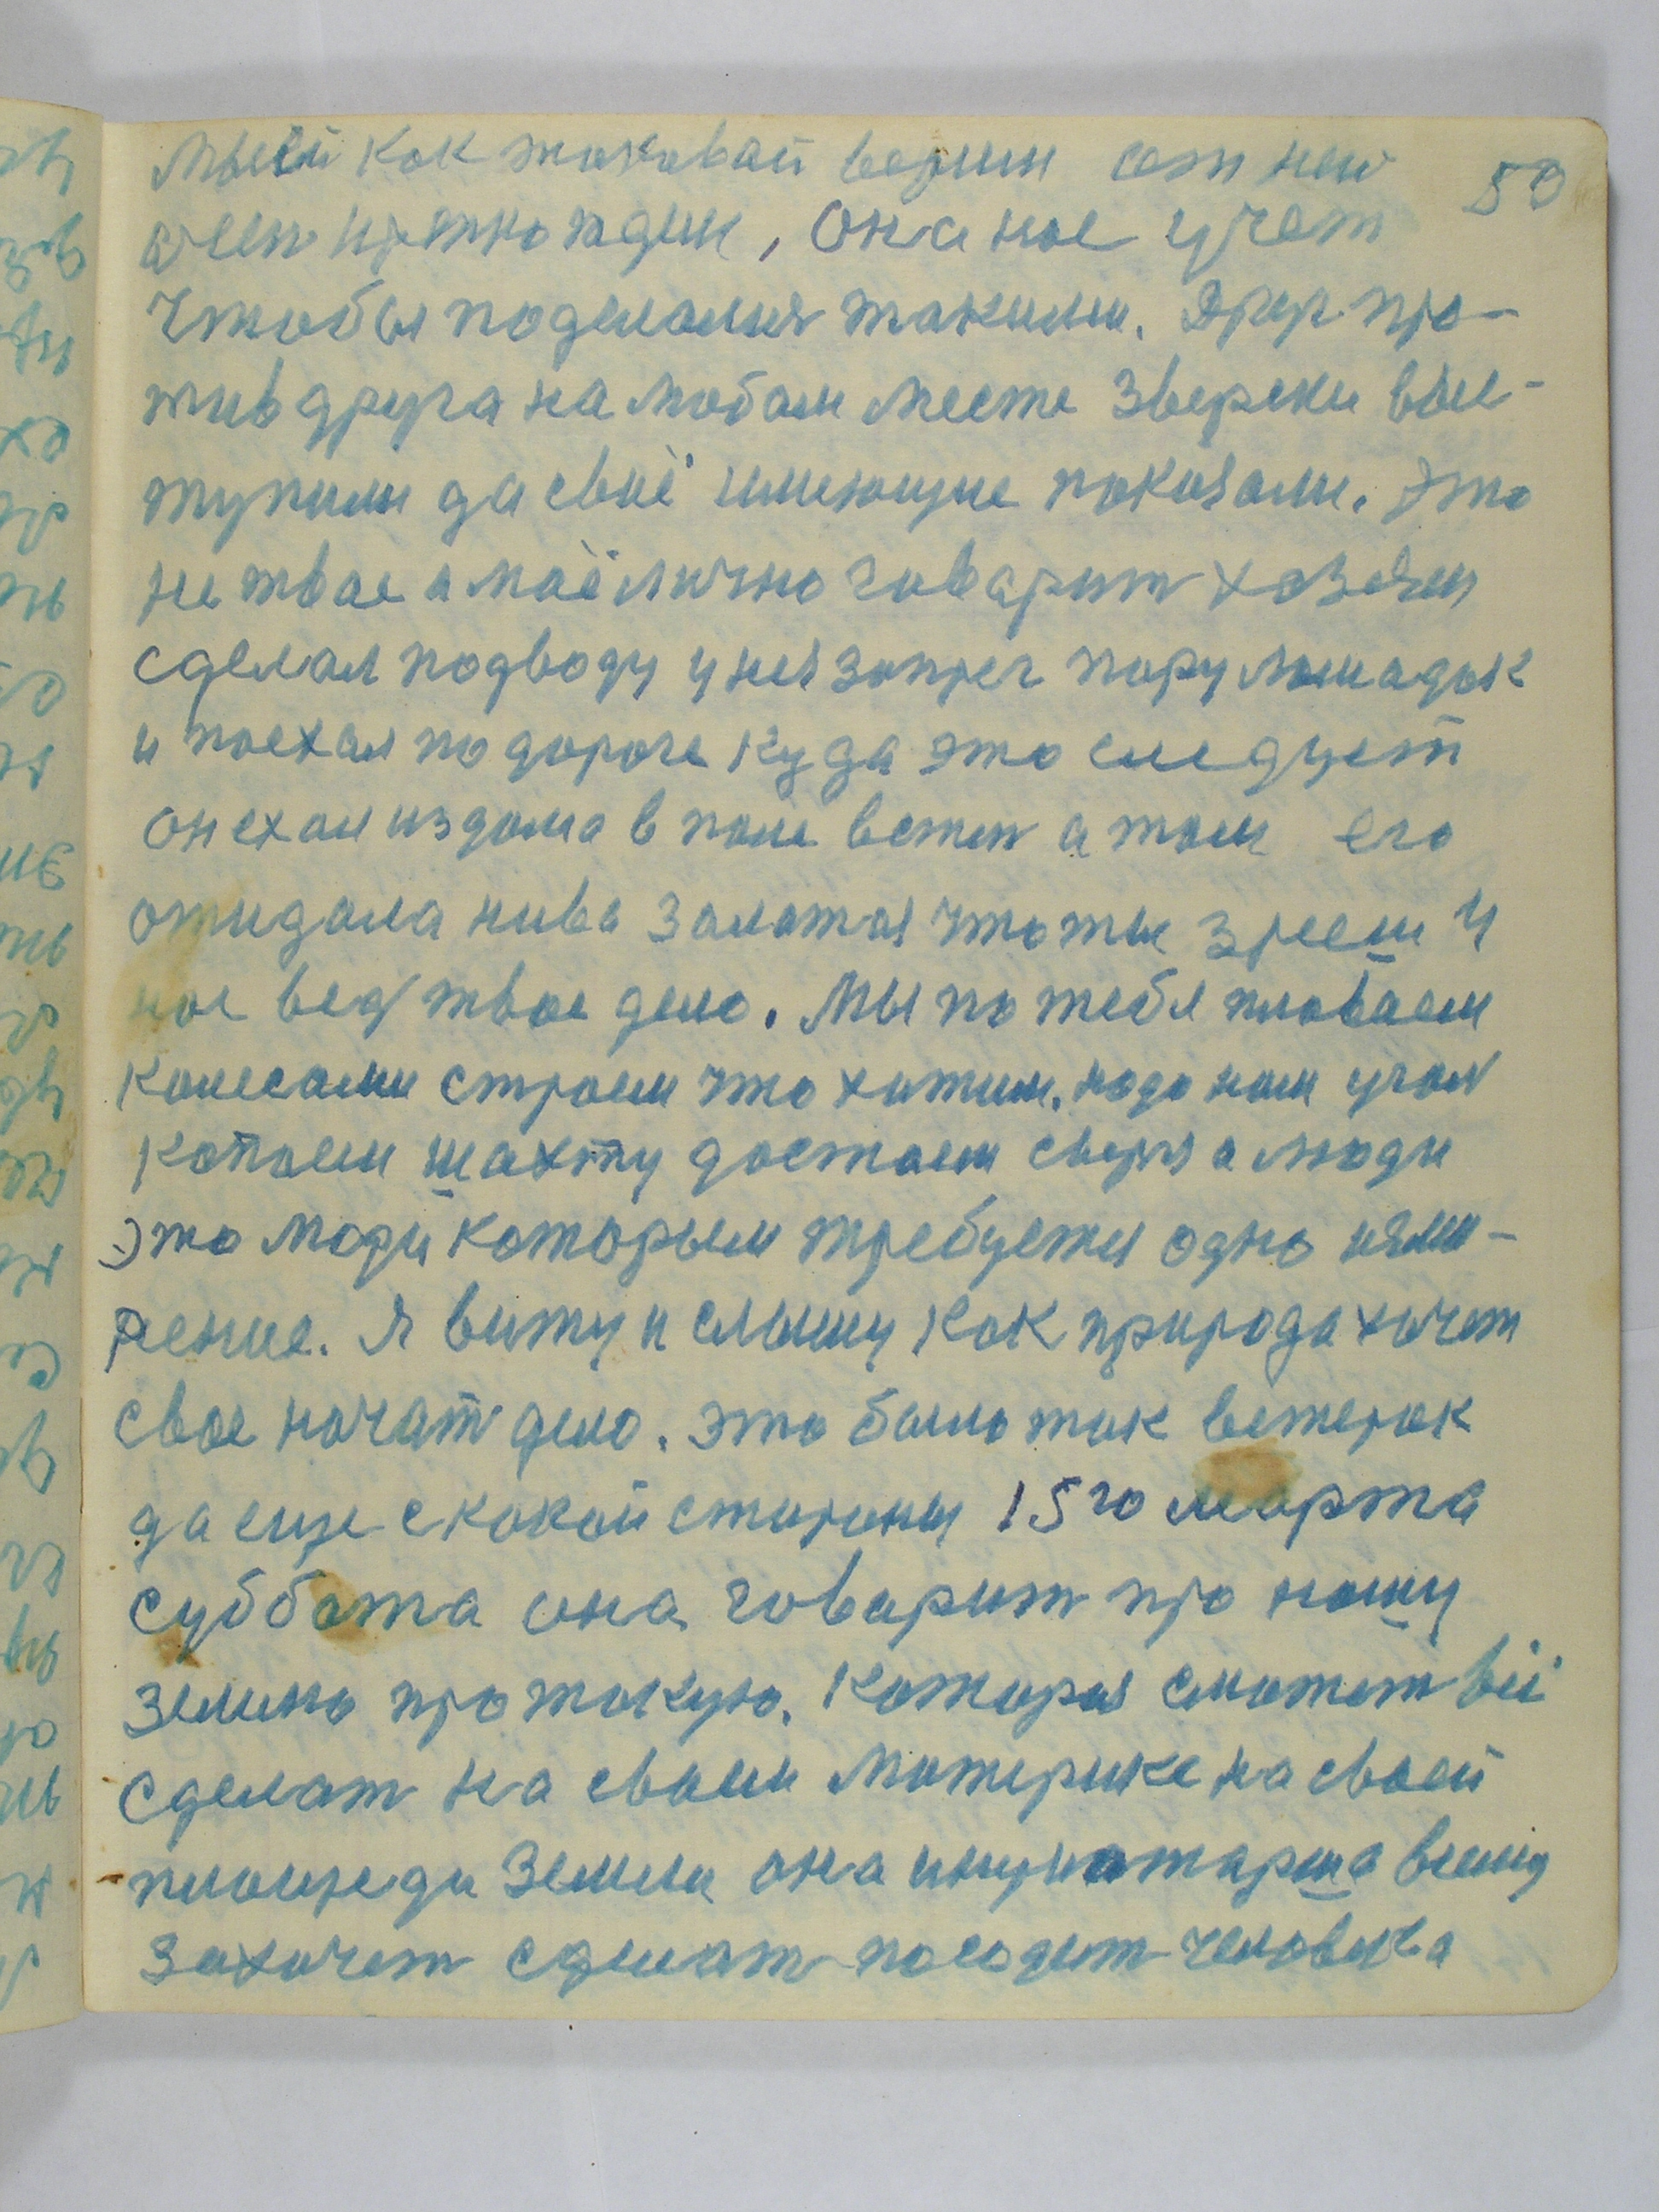 50
Мыей как таковай верим от ней
очен крепко ждем, Она нас учет
Чтобы поделалися такими. Друг про-
тив друга на любом месте Зверски выс-
тупили да своё имеющие показали. Это
не твое а моё лично говарит хозяен
сделал подводу у ния запрег пару лошадок
и поехал по дороге куда это следует
он ехал из дома в поле в степ а там его
ожидала нива Залатая что ты зрееш У
нас вед твое дело. Мы по тебя плаваем
колесами строем что хатим. надо нам угал
копаем шахту достаем сыря а люди
Это люди которым требуется одно
рение. Я вижу и слышу как природа хочет
свое начат дело. это было так ветерок
да еще с какой стороны 15го марта
суббота она говарит про нашу
Землю про такую. Которая сможет всё
сделат на своем материке на своей
площеди Земли она
Захочет сделат посодет человека